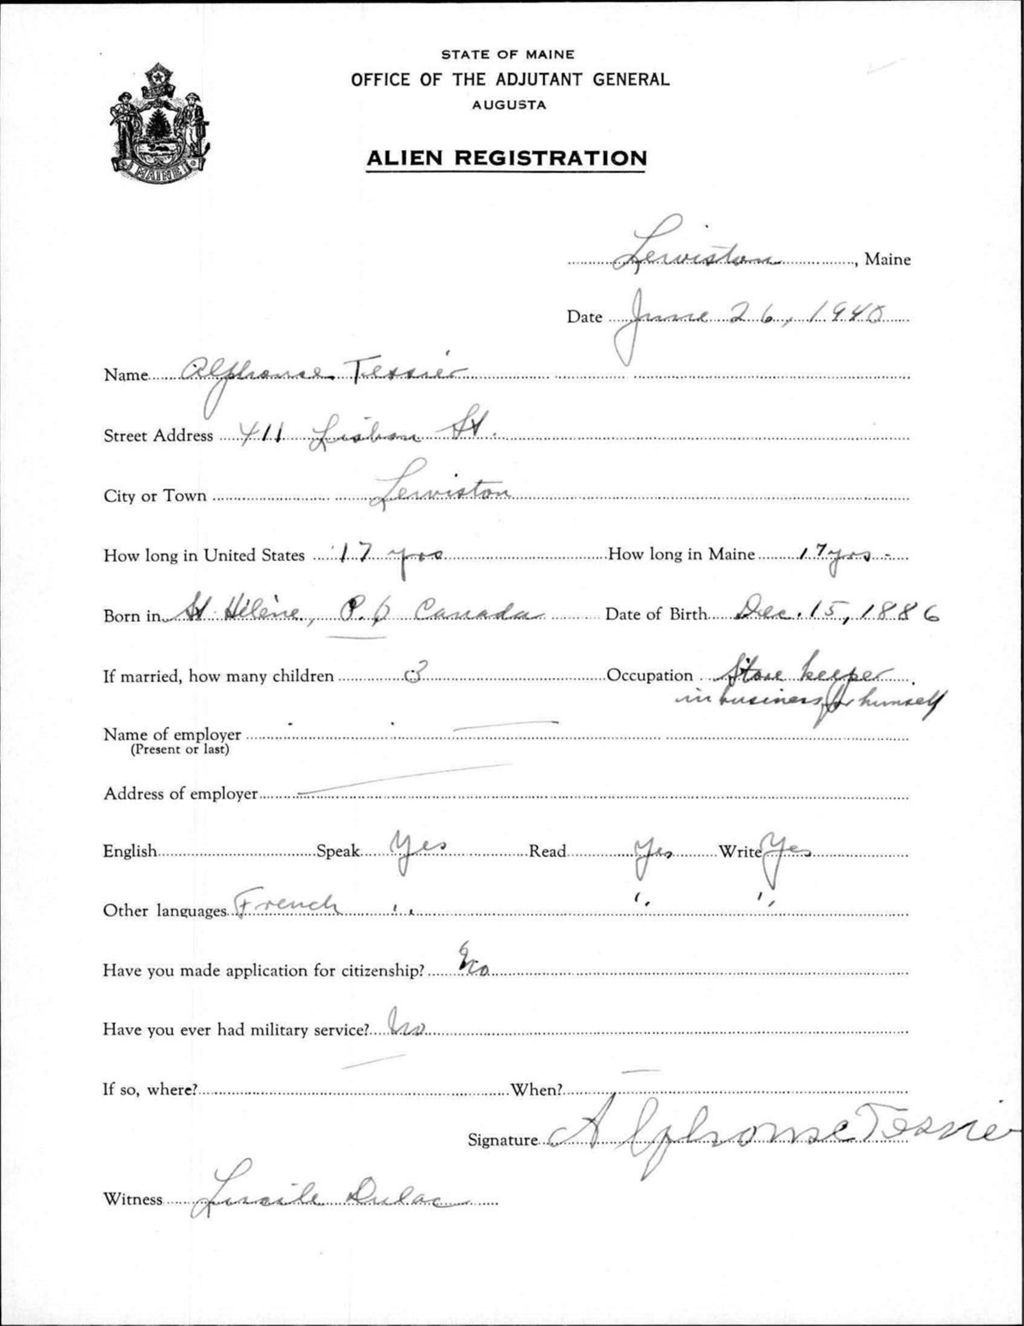 STATE OF MAINE
OFFICE OF THE ADJUTANT GENERAL
AUGUSTA
MAINE
ALIEN REGISTRATION
Lewiston, Maine
Date June 26, 1940
Name Alphonse Tessier
Street Address 411 Lisbon St.
City or Town Lewiston
How long in United States 17 yrs How long in Maine 17 yrs
Born in St Hélène, P.Q Canada Date of Birth Dec. 15, 1886
If married, how many children 3 Occupation Store keeper
in business for himself
Name of employer —
(Present or last)
Address of employer —
English Speak Yes Read Yes Write Yes
Other languages French " " "
Have you made application for citizenship? No
Have you ever had military service? No
If so, where? — When? —
Signature Alphonse Tessier
Witness Lucile Dulac